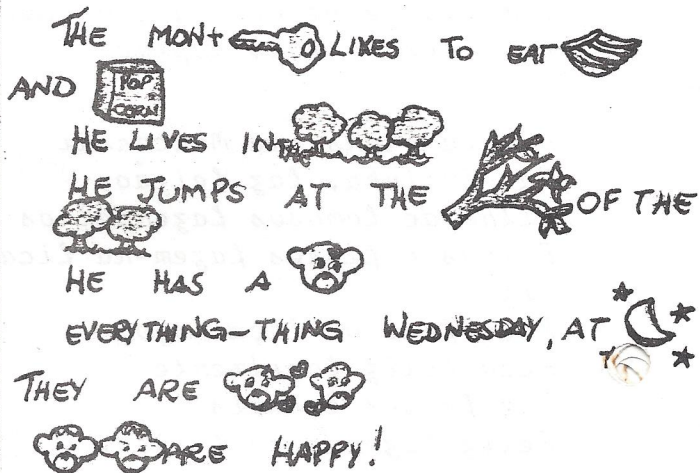 THE MON+ LIKES TO EAT
AND POP CORN
HE LIVES IN THE
HE JUMPS AT THE OF THE
HE HAS A
EVERYTHING-THING WEDNESDAY, AT
THEY ARE
ARE HAPPY!